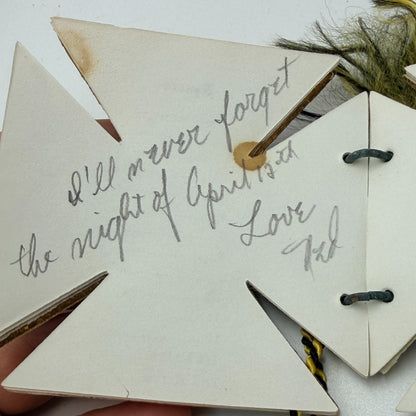 I'll never forget
the night of April 12th
Love
Ted